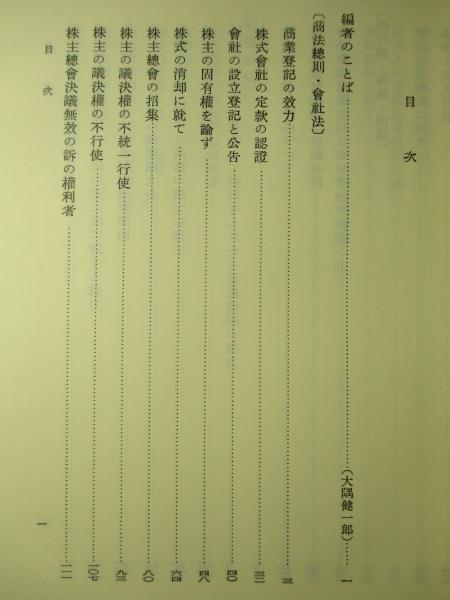 目次
編者のことば……（大隅健一郎）……一
〔商法總則・會社法〕
商業登記の效力……三
株式會社の定款の認證……三二
會社の設立登記と公告……四〇
株主の固有權を論ず……四八
株式の消却に就て……六四
株主總會の招集……八〇
株主の議決權の不統一行使……九三
株主の議決權の不行使……一〇七
株主總會決議無效の訴の權利者……一一一
目次
一